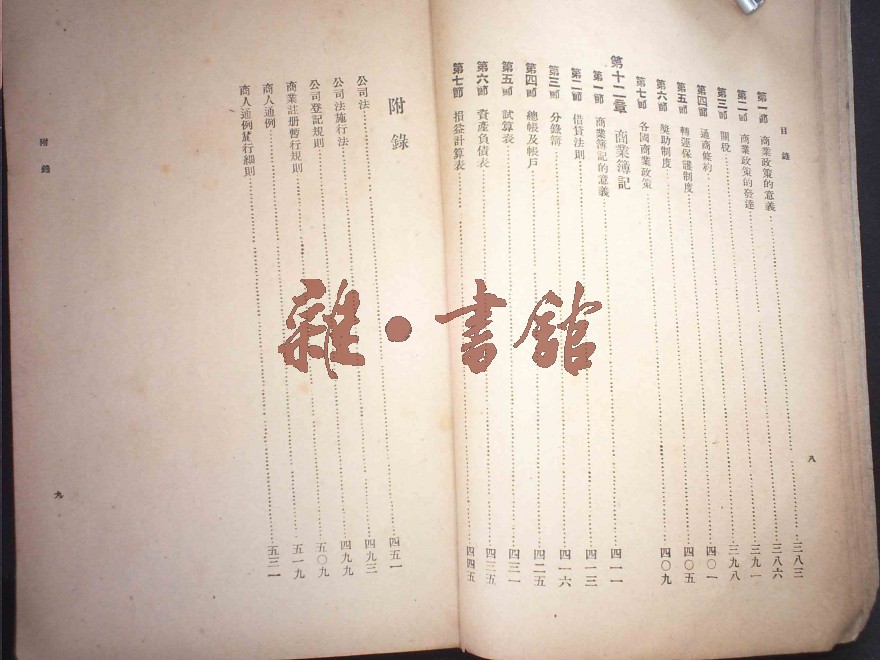 目錄
八
第一節 商業政策的意義……三八三
第二節 商業政策的發達……三八六
第三節 關稅……三九一
第四節 通商條約……三九八
第五節 轉運保護制度……四〇一
第六節 獎助制度……四〇五
第七節 各國商業政策……四〇九
第十二章 商業簿記
第一節 商業簿記的意義……四一一
第二節 借貸法則……四一三
第三節 分錄簿……四一六
第四節 總帳及帳戶……四二五
第五節 試算表……四三一
第六節 資產負債表……四三五
第七節 損益計算表……四四五
附錄
公司法……四五一
公司法施行法……四九三
公司登記規則……四九九
商業註册暫行規則……五〇九
商人通例……五一九
商人通例施行細則……五三一
附錄
九
雜·書館